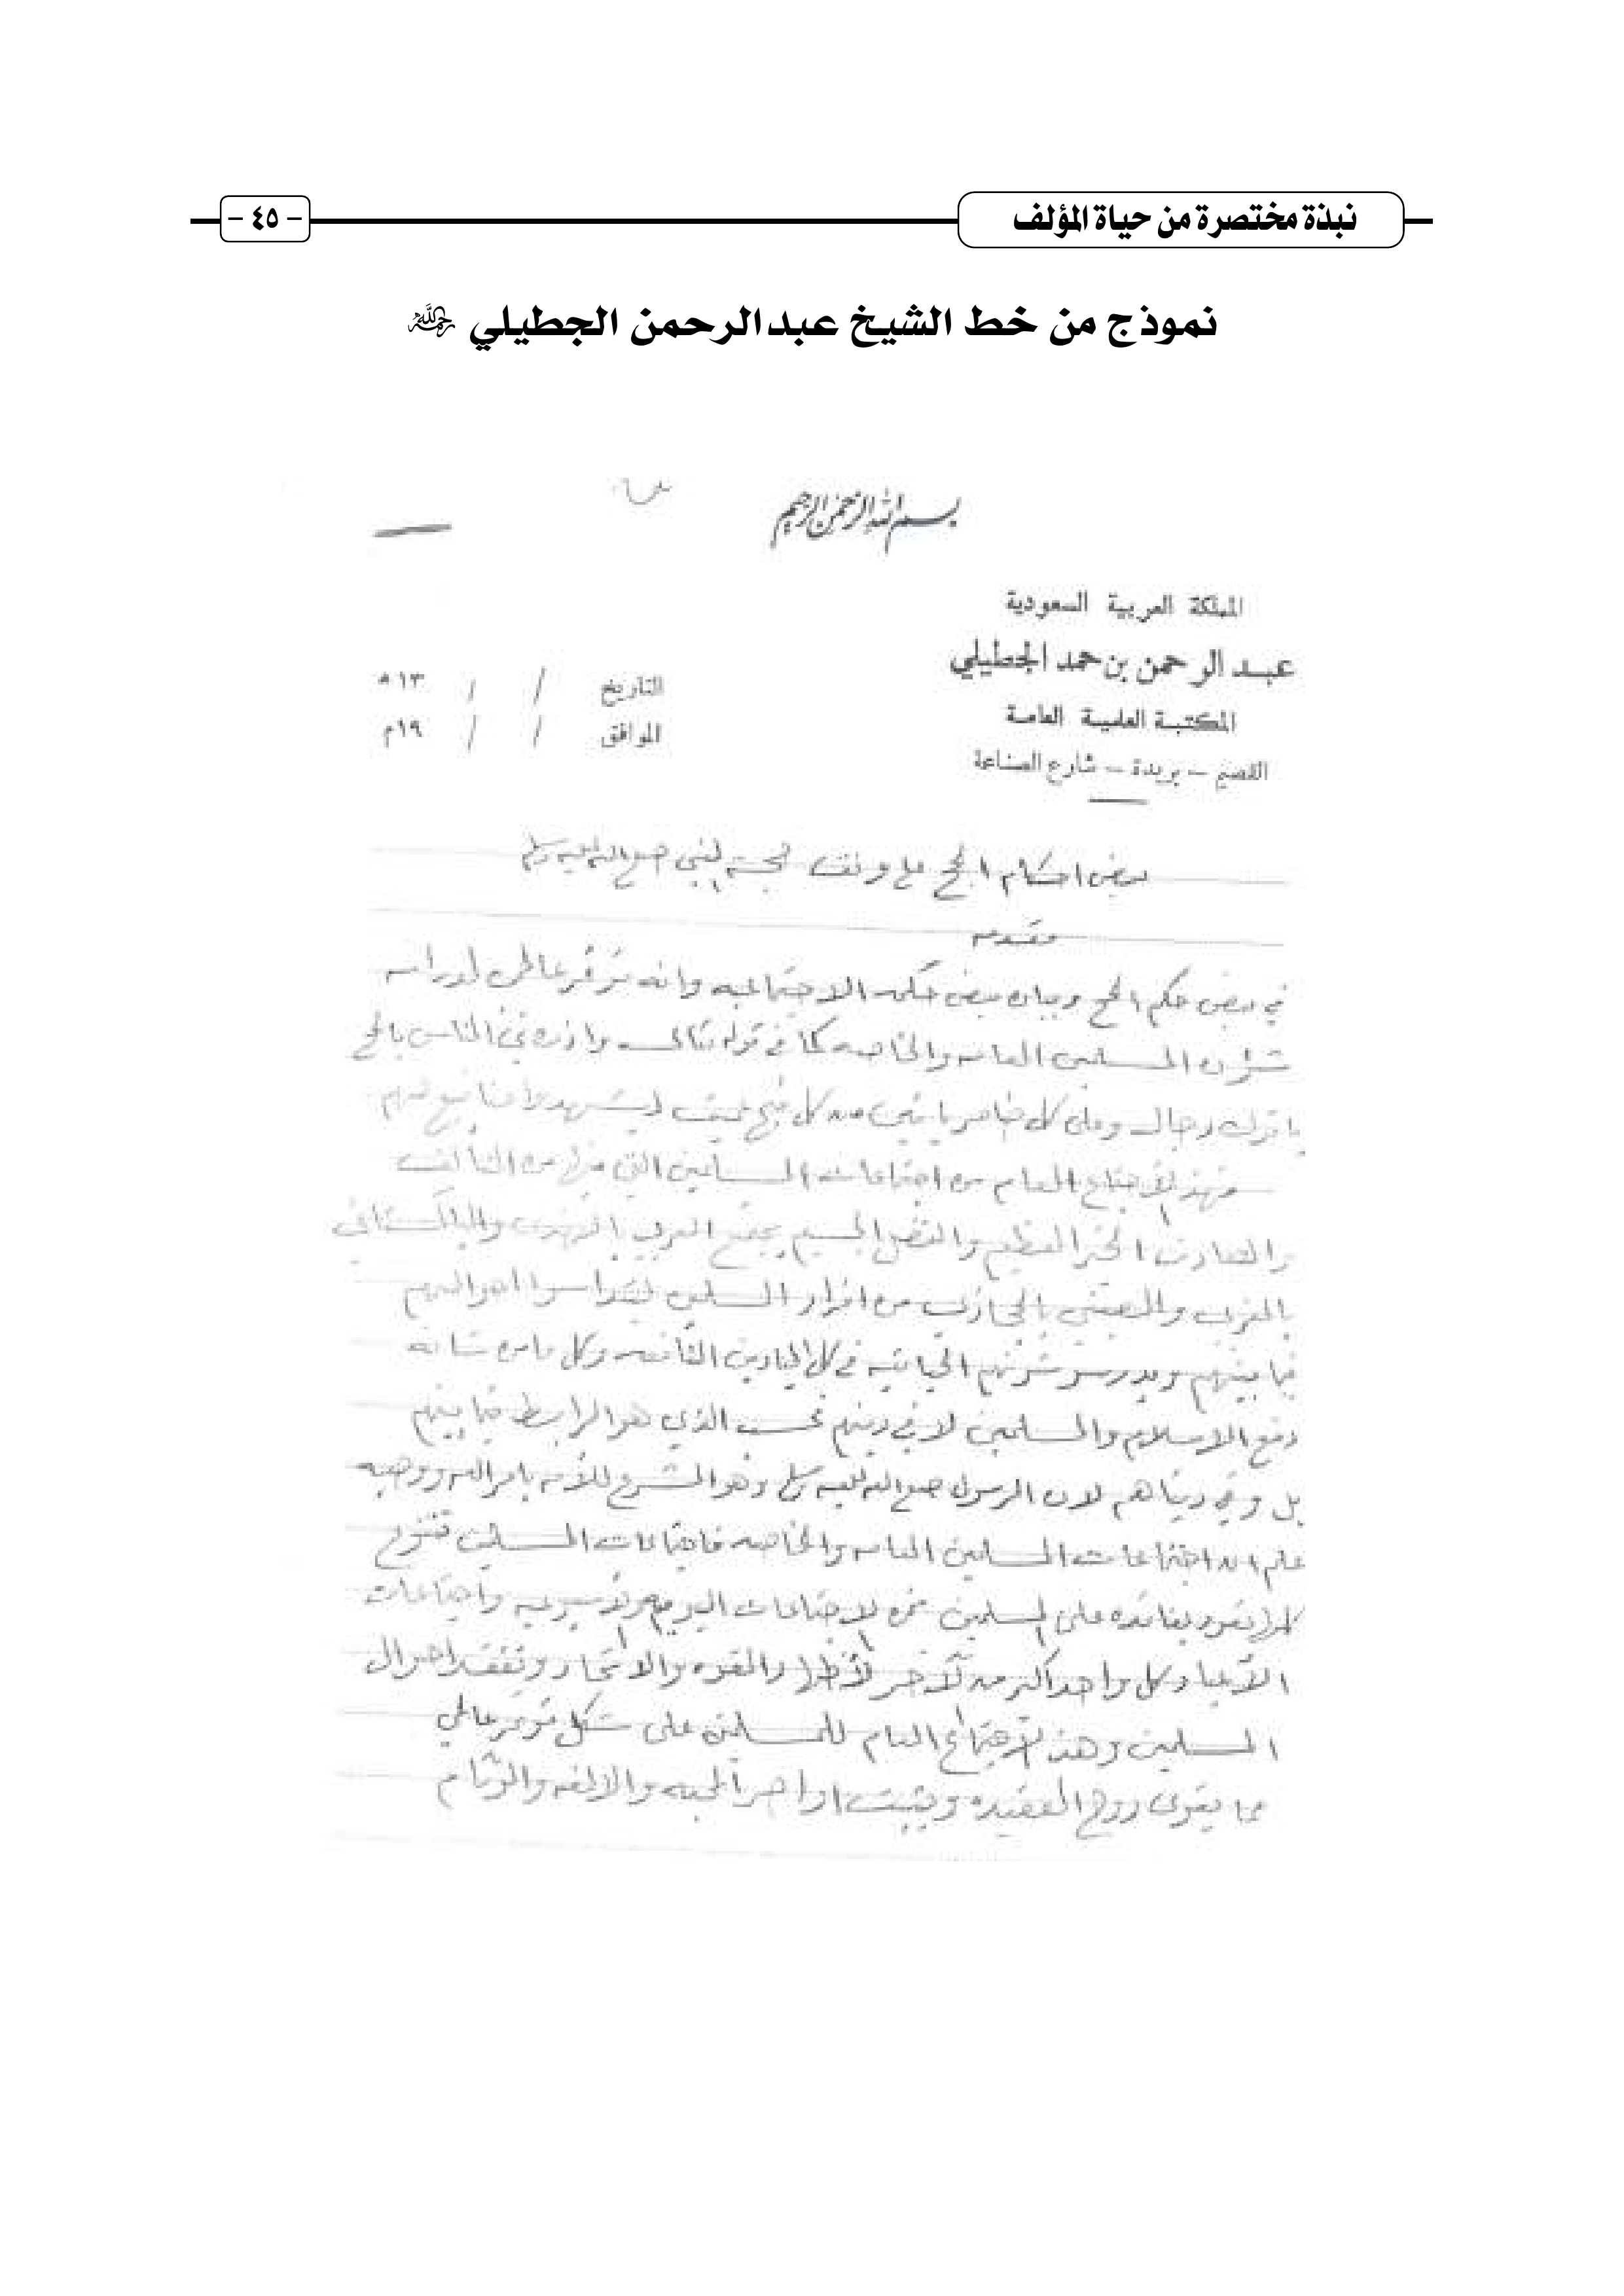 نبذة مختصرة من حياة المؤلف
- ٤٥ -
نموذج من خط الشيخ عبدالرحمن الجطيلي رحمه الله
بسم الله الرحمن الرحيم
المملكة العربية السعودية
عبد الرحمن بن حمد الجطيلي
المكتبة العلمية العامة
القصيم - بريدة - شارع الصناعة
التاريخ / / ١٣ هـ
الموافق / / ١٩ م
بعض احكام الحج على وفق حجة النبي صلى الله عليه وسلم
مقدمه
في بعض حكم الحج وبيان بعض حكمه الاجتماعيه وانه مؤتمر عالمي لدراسه
شؤن المسلمين العامه والخاصه كما في قوله تعالى واذن في الناس بالحج
ياتوك رجالا وعلى كل ضامر ياتين من كل فج عميق ليشهدوا منافع لهم
فهذ الأجتماع العام من اجتماعات المسلمين التي فيها من التآلف
والتعارف الخير العظيم والنفع الجسيم يجتمع العربي بالهندي والباكستاني
بالمغربي والصيني بالحجازي من افراد المسلمين ليتدارسوا احوالهم
فيما بينهم ويدرسو شؤنهم الحياتيه في كل الميادين النافعه وكل ما من شانه
رفع الاسلام والمسلمين لا في دينهم فحسب الذي هو الرابط فيما بينهم
بل وفي دنياهم لان الرسول صلى الله عليه وسلم وهو المشرع للأمه بامر الله ووحيه
اجتماعات المسلمين العامه والخاصه فاجتماعات المسلمين تتنوع
كلها يعود بفائده على المسلمين فمن الاجتماعات اليوميه والأسبوعيه واجتماعات
الأعياد وكل واحد اكبر من الآخر لأظهار القوه والاتحاد وتفقد احوال
المسلمين وهذ الأجتماع العام للمسلمين على شكل مؤتمر عالمي
مما يقوي روح العقيده ويثبت اواصر المحبه والالفه والوئام